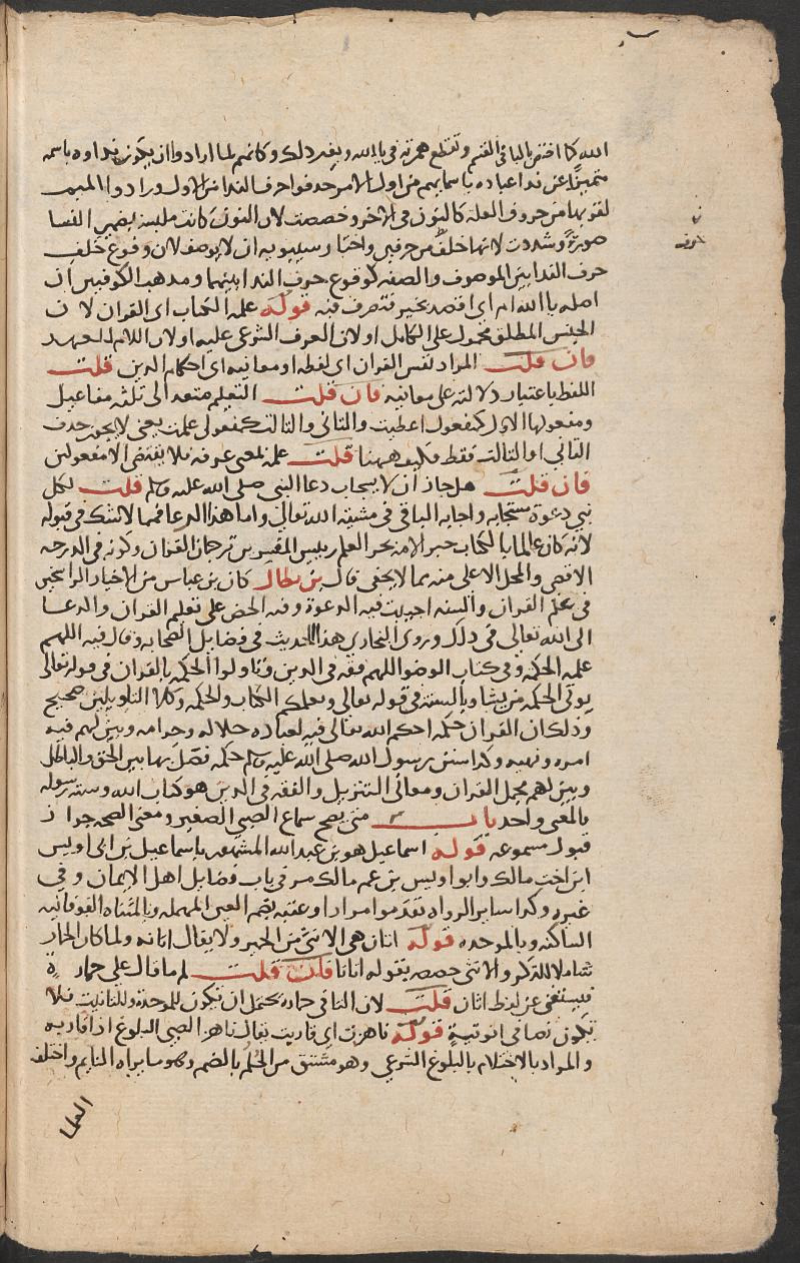 الله كما اختص بالباء فى القسم وتقطع همزته فى يا الله وبغير ذلك وكانهم لما ارادوا ان يكون نداوه باسمه
متميزا عن ندا عباده باسمايهم من اول الامر حذفوا حرف الندا من الاول وزادوا الميم
لقربها من حروف العلة كالنون فى الاخر وخصت لان النون كانت ملتبسة بضمير النسا
صورة وشددت لانها خلف من حرفين واختار سيبويه ان لا يوصف لان وقوع خلف
حرف الندا بين الموصوف والصفه كوقوع حرف الندا بينهما ومذهب الكوفيين ان
اصله يا الله ام اى اقصد بخير فتصرف فيه قوله علمه الكتاب اى القران لان
الجنس المطلق محمول على الكامل او لان العرف الشرعى عليه او لان اللام للعهد
فان قلت المراد نفس القران اى لفظه او معانيه اى احكام الدين قلت
اللفظ باعتبار دلالته على معانيه فان قلت التعليم متعد الى ثلثه مفاعيل
ومفعولها الاول كمفعول اعطيت والثانى والثالث كمفعولى علمت يعنى لا يجوز حذف
الثانى او الثالث فقط فكيف ههنا قلت علمه بمعنى عرفه فلا يقتضى الا مفعولين
فان قلت هل جاز ان لا يستجاب دعا النبى صلى الله عليه وسلم قلت لكل
نبى دعوة مستجابه واجابه الباقى فى مشيئة الله تعالى واما هذا الدعا فمما لا شك فى قبوله
لانه كان عالما بالكتاب حبر الامه بحر العلم رييس المفسرين ترجمان القران وكونه فى الدرجه
الاقصى والمحل الاعلى منه مما لا يخفى قال بن بطال كان بن عباس من الاخيار الراسخين
فى علم القران والسنه اجيبت فيه الدعوة وفيه الحض على تعلم القران والدعا
الى الله تعالى فى ذلك وروى البخارى هذا الحديث فى فضايل الصحابه وقال فيه اللهم
علمه الحكمه وفى كتاب الوضو اللهم فقهه فى الدين وتاولوا الحكمه بالقران فى قوله تعالى
يوتى الحكمه من يشا وبالسنه فى قوله تعالى ويعلمكم الكتاب والحكمه وكلا التاويلين صحيح
وذلك ان القران حكمه احكم الله تعالى فيه لعباده حلاله وحرامه وبين لهم فيه
امره ونهيه وكذا سنن رسول الله صلى الله عليه وسلم حكمه فصل بها بين الحق والباطل
وبين لهم مجمل القران ومعانى التنزيل والفقه فى الدين هو كتاب الله وسنه رسوله
بالمعنى واحد باب متى يصح سماع الصبى الصغير ومعنى الصحه جواز
قبول مسموعه قوله اسماعيل هو بن عبد الله المشهور باسماعيل بن ابى اويس
ابن اخت مالك وابو اويس بن عم مالك مر فى باب تفاضل اهل الايمان وفى
غيره وكذا ساير الرواه تقدموا مرارا وعتبه بضم العين المهمله وبالمثناه الفوقانيه
الساكنه وبالموحده قوله اتان هى الانثى من الحمير ولا يقال اتانه ولما كان الحمار
شاملا للذكر والانثى خصصه بقوله اتانا فان قلت لم ما قال على حمارة
فيستغنى عن لفظ اتان قلت لان التا فى حماره يحتمل ان تكون للوحدة وللتانيث فلا
تكون نصا فى انوثيته قوله ناهزت اى قاربت يقال ناهز الصبى البلوغ اذا قاربه
والمراد بالاحتلام البلوغ الشرعى وهو مشتق من الحلم بالضم وهو ما يراه النايم واختلف
العلما